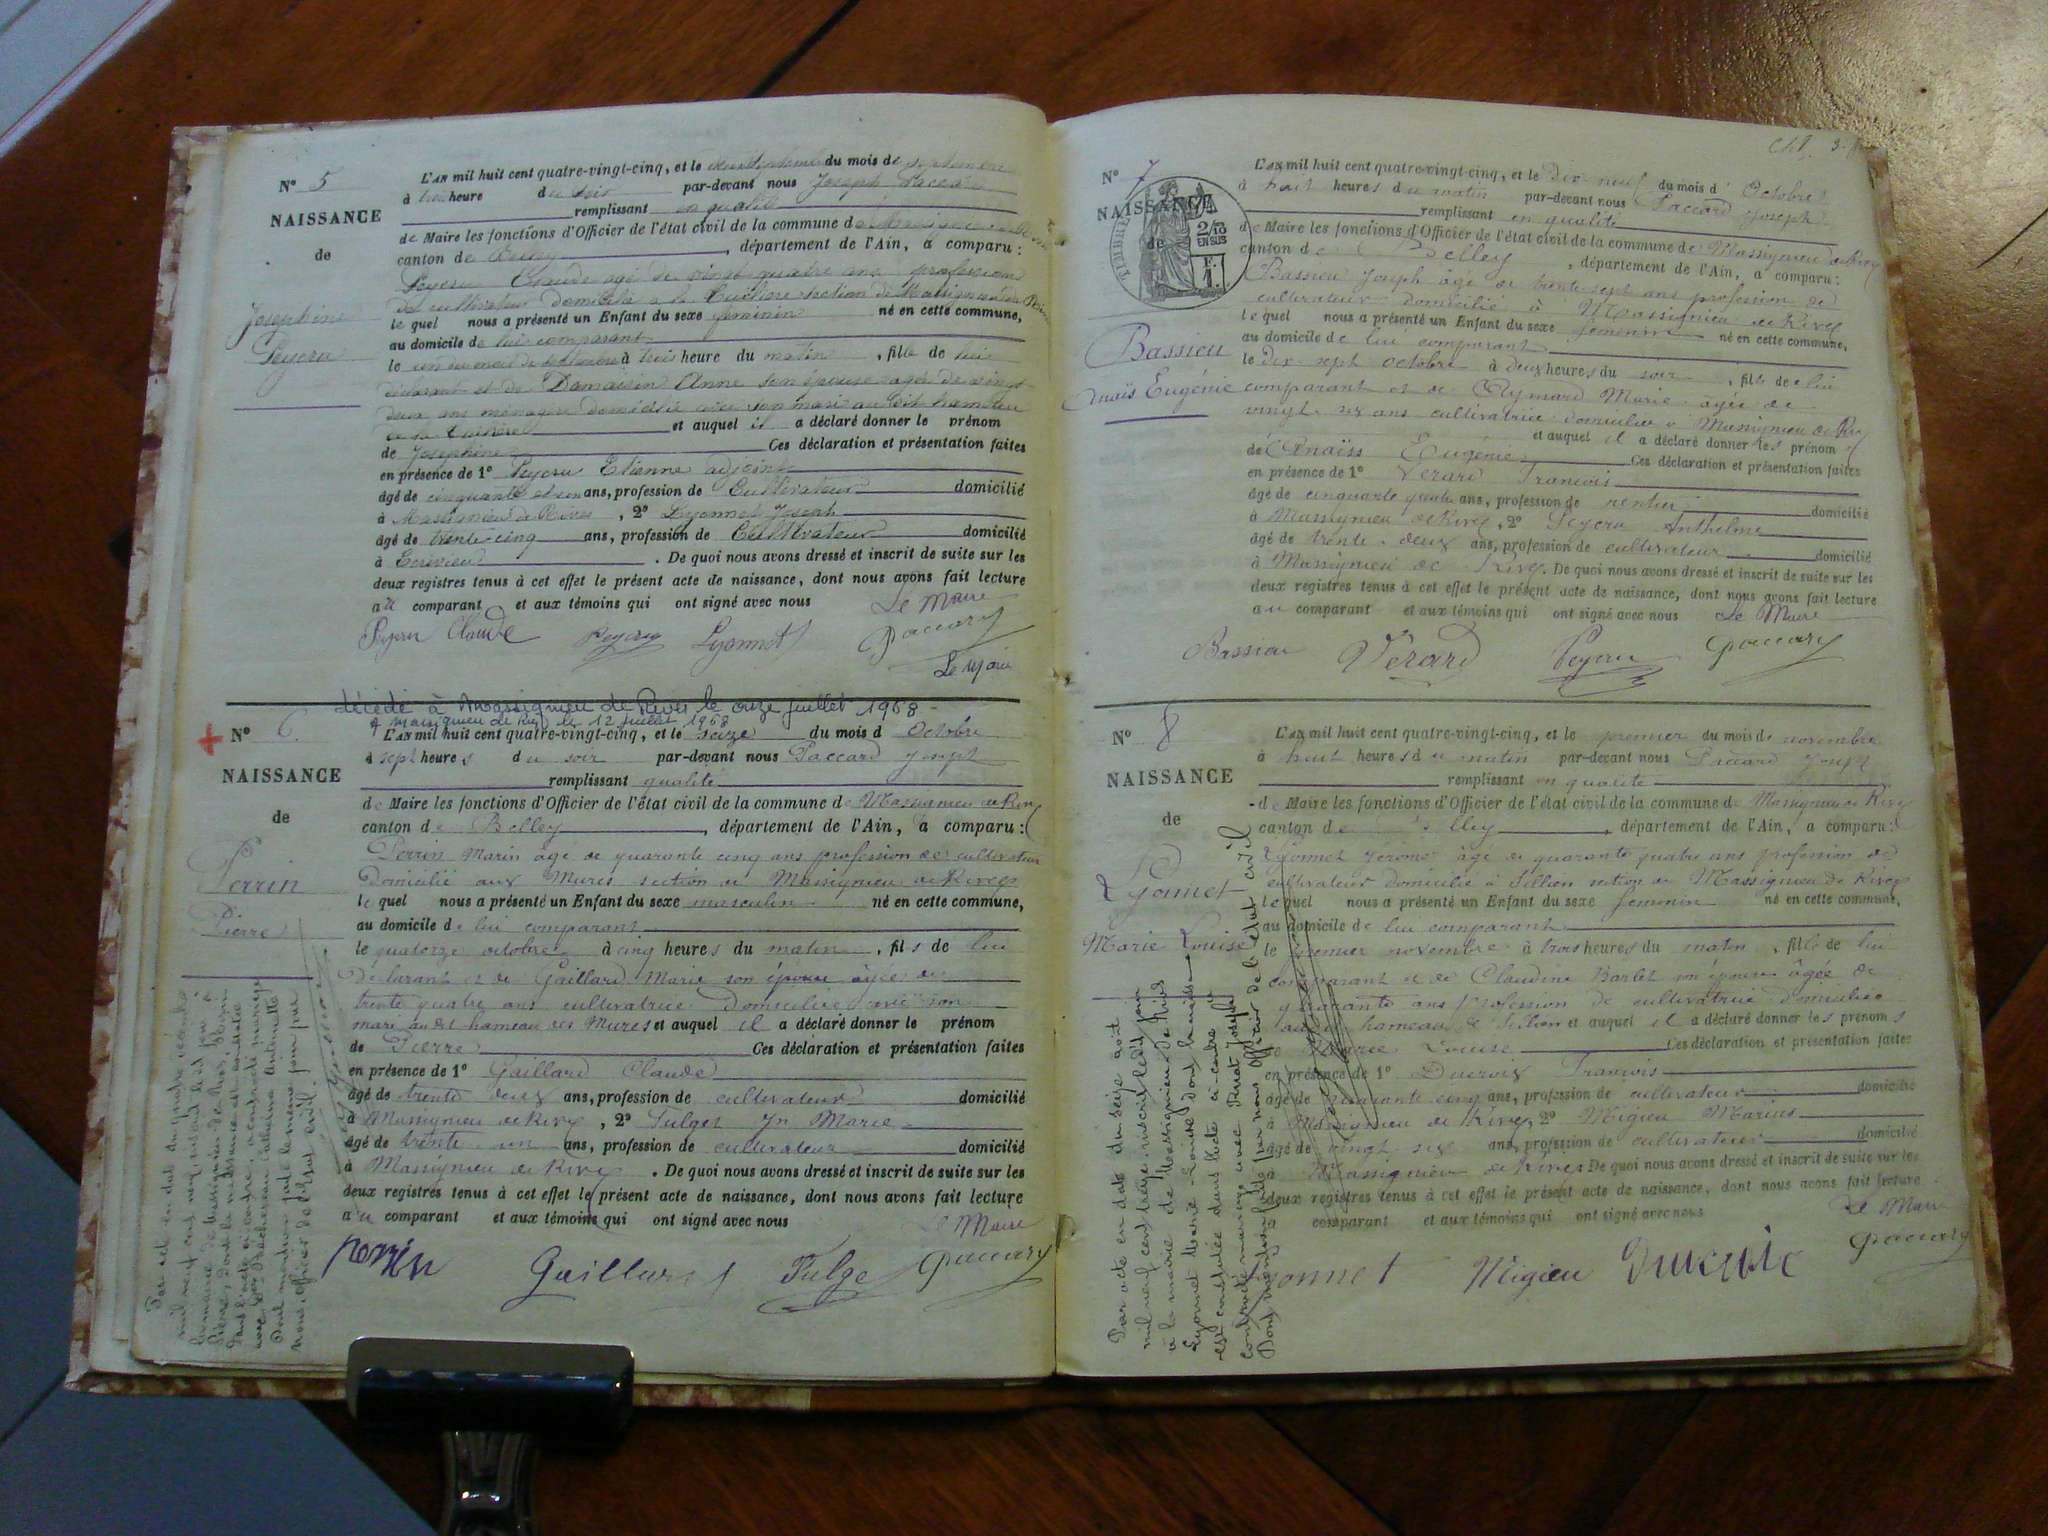 N° 5
NAISSANCE
de
Josephine
Peycru
L'AN mil huit cent quatre-vingt-cinq, et le du mois de septembre
à heure du soir par-devant nous Joseph Paccard
remplissant en qualité
de Maire les fonctions d'Officier de l'état civil de la commune de
canton de Belley, département de l'Ain, a comparu :
Peycru Claude agé de vingt quatre ans profession
de cultivateur domicilié a la section de Massignieu de Rives
le quel nous a présenté un Enfant du sexe feminin né en cette commune,
au domicile de lui comparant
le un du mois de septembre à trois heure du matin, fille de lui
déclarant et de Damaisin Anne son épouse agée de vingt
deux ans ménagère domicilié avec son mari au dit hameau
de la et auquel il a déclaré donner le prénom
de Josephine Ces déclaration et présentation faites
en présence de 1° Peycru Etienne adjoint
âgé de cinquante et un ans, profession de Cultivateur domicilié
à Massignieu de Rives, 2° Lyonnet Joseph
âgé de trente cinq ans, profession de Cultivateur domicilié
à Ecrivieu. De quoi nous avons dressé et inscrit de suite sur les
deux registres tenus à cet effet le présent acte de naissance, dont nous avons fait lecture
au comparant et aux témoins qui ont signé avec nous Le Maire
Peycru Claude Peycru Lyonnet Paccard
Le Maire
décédé à Massignieu de Rives le onze juillet 1968
A Massignieu de Rives le 12 juillet 1968
N° 6
NAISSANCE
de
Perrin
Pierre
L'AN mil huit cent quatre-vingt-cinq, et le seize du mois d Octobre
à sept heures du soir par-devant nous Paccard Joseph
remplissant qualité
de Maire les fonctions d'Officier de l'état civil de la commune de Massignieu de Rives
canton de Belley, département de l'Ain, a comparu :
Perrin Marin âgé de quarante cinq ans profession de cultivateur
domicilié aux Mures section de Massignieu de Rives
le quel nous a présenté un Enfant du sexe masculin né en cette commune,
au domicile de lui comparant
le quatorze octobre à cinq heures du matin, fils de lui
déclarant et de Gaillard Marie son épouse âgée de
trente quatre ans cultivatrice domiciliée avec son
mari au dit hameau des Mures et auquel il a déclaré donner le prénom
de Pierre Ces déclaration et présentation faites
en présence de 1° Gaillard Claude
âgé de trente deux ans, profession de cultivateur domicilié
à Massignieu de Rives, 2° Tulge Jn Marie
âgé de trente un ans, profession de cultivateur domicilié
à Massignieu de Rives. De quoi nous avons dressé et inscrit de suite sur les
deux registres tenus à cet effet le présent acte de naissance, dont nous avons fait lecture
au comparant et aux témoins qui ont signé avec nous Le Maire
Perrin Gaillard Tulge Paccard
Par acte en date du quatre décembre
mil neuf cent neuf, inscrit led. jour à
la mairie de Massignieu de Rives, Perrin
Pierre, dont la naissance est constatée
dans l'acte ci-contre, a contracté mariage
avec Catherine Antoinette
Dont mention faite le même jour par
nous, officier de l'état civil.
N° 7
NAISSANCE
de
TIMBRE
2/10
EN SUS
F.
1.
Bassieu
Anaïs Eugénie
L'AN mil huit cent quatre-vingt-cinq, et le dix neuf du mois d' Octobre
à huit heures du matin par-devant nous Paccard Joseph
remplissant en qualité
de Maire les fonctions d'Officier de l'état civil de la commune de Massignieu de Rives
canton de Belley, département de l'Ain, a comparu :
Bassieu Joseph âgé de trente sept ans profession de
cultivateur domicilié à Massignieu de Rives
le quel nous a présenté un Enfant du sexe feminin né en cette commune,
au domicile de lui comparant
le dix sept octobre à deux heures du soir, fille de lui
comparant et de Aymard Marie âgée de
vingt six ans cultivatrice domiciliée à Massignieu de Rives
et auquel il a déclaré donner les prénoms
de Anaïss Eugénie Ces déclaration et présentation faites
en présence de 1° Verard Francois
âgé de cinquante quatre ans, profession de rentier domicilié
à Massignieu de Rives, 2° Peycru Anthelme
âgé de trente deux ans, profession de cultivateur domicilié
à Massignieu de Rives. De quoi nous avons dressé et inscrit de suite sur les
deux registres tenus à cet effet le présent acte de naissance, dont nous avons fait lecture
au comparant et aux témoins qui ont signé avec nous Le Maire
Bassieu Verard Peycru Paccard
N° 8
NAISSANCE
de
Lyonnet
Marie Louise
L'AN mil huit cent quatre-vingt-cinq, et le premier du mois de novembre
à huit heures du matin par-devant nous Paccard Joseph
remplissant en qualité
de Maire les fonctions d'Officier de l'état civil de la commune de Massignieu de Rives
canton de Belley, département de l'Ain, a comparu :
Lyonnet Jérome âgé de quarante quatre ans profession de
cultivateur domicilié à Sillien section de Massignieu de Rives
le quel nous a présenté un Enfant du sexe feminin né en cette commune,
au domicile de lui comparant
le premier novembre à trois heures du matin, fille de lui
comparant et de Claudine Barlet son épouse âgée de
quarante ans profession de cultivatrice domiciliée
hameau de Sillien et auquel il a déclaré donner les prénoms
de Marie Louise Ces déclaration et présentation faites
en présence de 1° Ducroix Francois
âgé de quarante cinq ans, profession de cultivateur domicilié
à Massignieu de Rives, 2° Migieu Marius
âgé de vingt six ans, profession de cultivateur domicilié
à Massignieu de Rives De quoi nous avons dressé et inscrit de suite sur les
deux registres tenus à cet effet le présent acte de naissance, dont nous avons fait lecture
a comparant et aux témoins qui ont signé avec nous Le Maire
Lyonnet Migieu Ducroix Paccard
Par acte en date du seize août
mil neuf cent treize, inscrit ledit jour
à la mairie de Massignieu de Rives
Lyonnet Marie-Louise dont la naissance
est constatée dans l'acte ci-contre a
contracté mariage avec Joseph
Dont mention faite par nous Officier de l'état civil